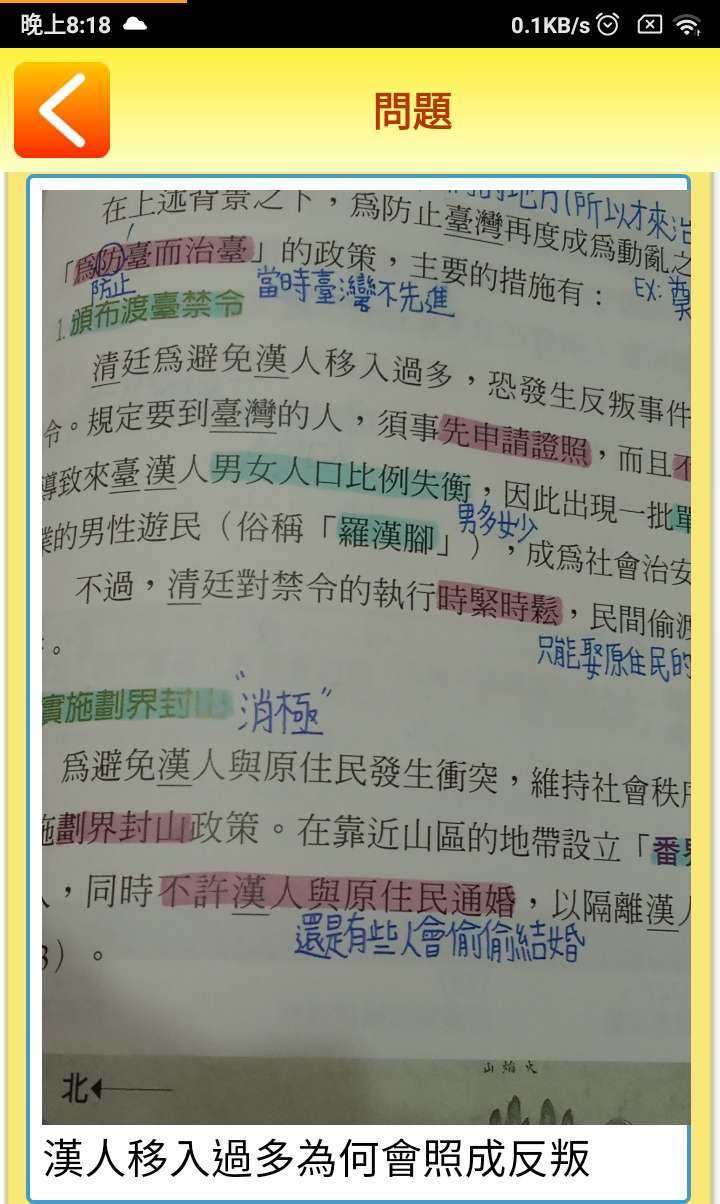 晚上8:18
0.1KB/s
問題
的地方(所以才來治
在上述背景之下，為防止臺灣再度成為動亂之
「為防臺而治臺」的政策，主要的措施有：
防止
當時臺灣不先進
EX:
1.頒布渡臺禁令
清廷為避免漢人移入過多，恐發生反叛事件
令。規定要到臺灣的人，須事先申請證照，而且不
導致來臺漢人男女人口比例失衡，因此出現一批單
男多女少
的男性遊民（俗稱「羅漢腳」），成為社會治安
不過，清廷對禁令的執行時緊時鬆，民間偷渡
。
只能娶原住民的
實施劃界封山
"消極"
為避免漢人與原住民發生衝突，維持社會秩序
施劃界封山政策。在靠近山區的地帶設立「番界
，同時不許漢人與原住民通婚，以隔離漢人
還是有些人會偷偷結婚
3）。
山焰火
北
漢人移入過多為何會照成反叛